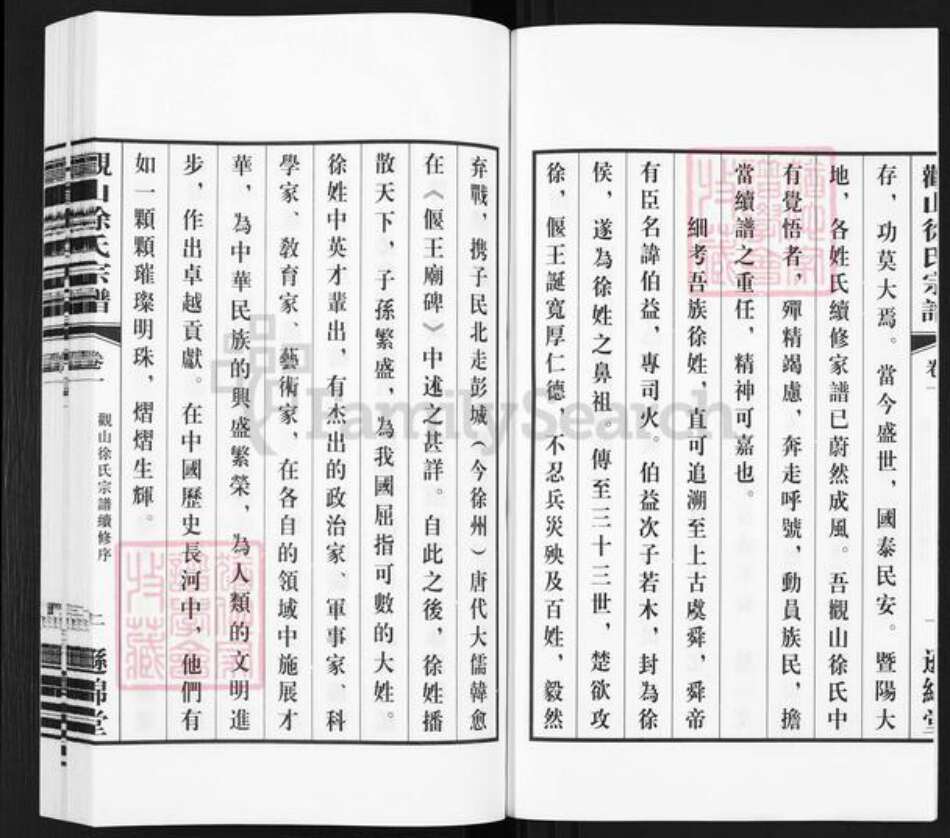 觀山徐氏宗譜
卷一
存，功莫大焉。當今盛世，國泰民安。暨陽大
地，各姓氏續修家譜已蔚然成風。吾觀山徐氏中
有覺悟者，殫精竭慮，奔走呼號，動員族民，擔
當續譜之重任，精神可嘉也。
細考吾族徐姓，直可追溯至上古虞舜，舜帝
有臣名諱伯益，專司火。伯益次子若木，封為徐
侯，遂為徐姓之鼻祖。傳至三十三世，楚欲攻
徐，偃王誕寬厚仁德，不忍兵災殃及百姓，毅然
弃戰，携子民北走彭城（今徐州）唐代大儒韓愈
在《偃王廟碑》中述之甚詳。自此之後，徐姓播
散天下，子孫繁盛，為我國屈指可數的大姓。
徐姓中英才輩出，有杰出的政治家、軍事家、科
學家、教育家、藝術家，在各自的領域中施展才
華，為中華民族的興盛繁榮，為人類的文明進
步，作出卓越貢獻。在中國歷史長河中，他們有
如一顆顆璀璨明珠，熠熠生輝。
觀山徐氏宗譜
卷一
觀山徐氏宗譜續修序
二
遜綿堂
FamilySearch